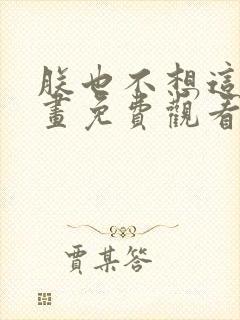 朕也不想這
畫免費觀看
賈某答